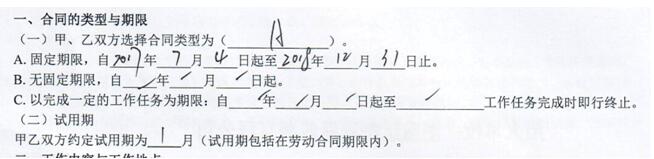 一、合同的类型与期限
（一）甲、乙双方选择合同类型为（A）。
A. 固定期限，自2017年7月4日起至2018年12月31日止。
B. 无固定期限，自/年/月/日起。
C. 以完成一定的工作任务为期限：自/年/月/日起至/工作任务完成时即行终止。
（二）试用期
甲乙双方约定试用期为1月（试用期包括在劳动合同期限内）。